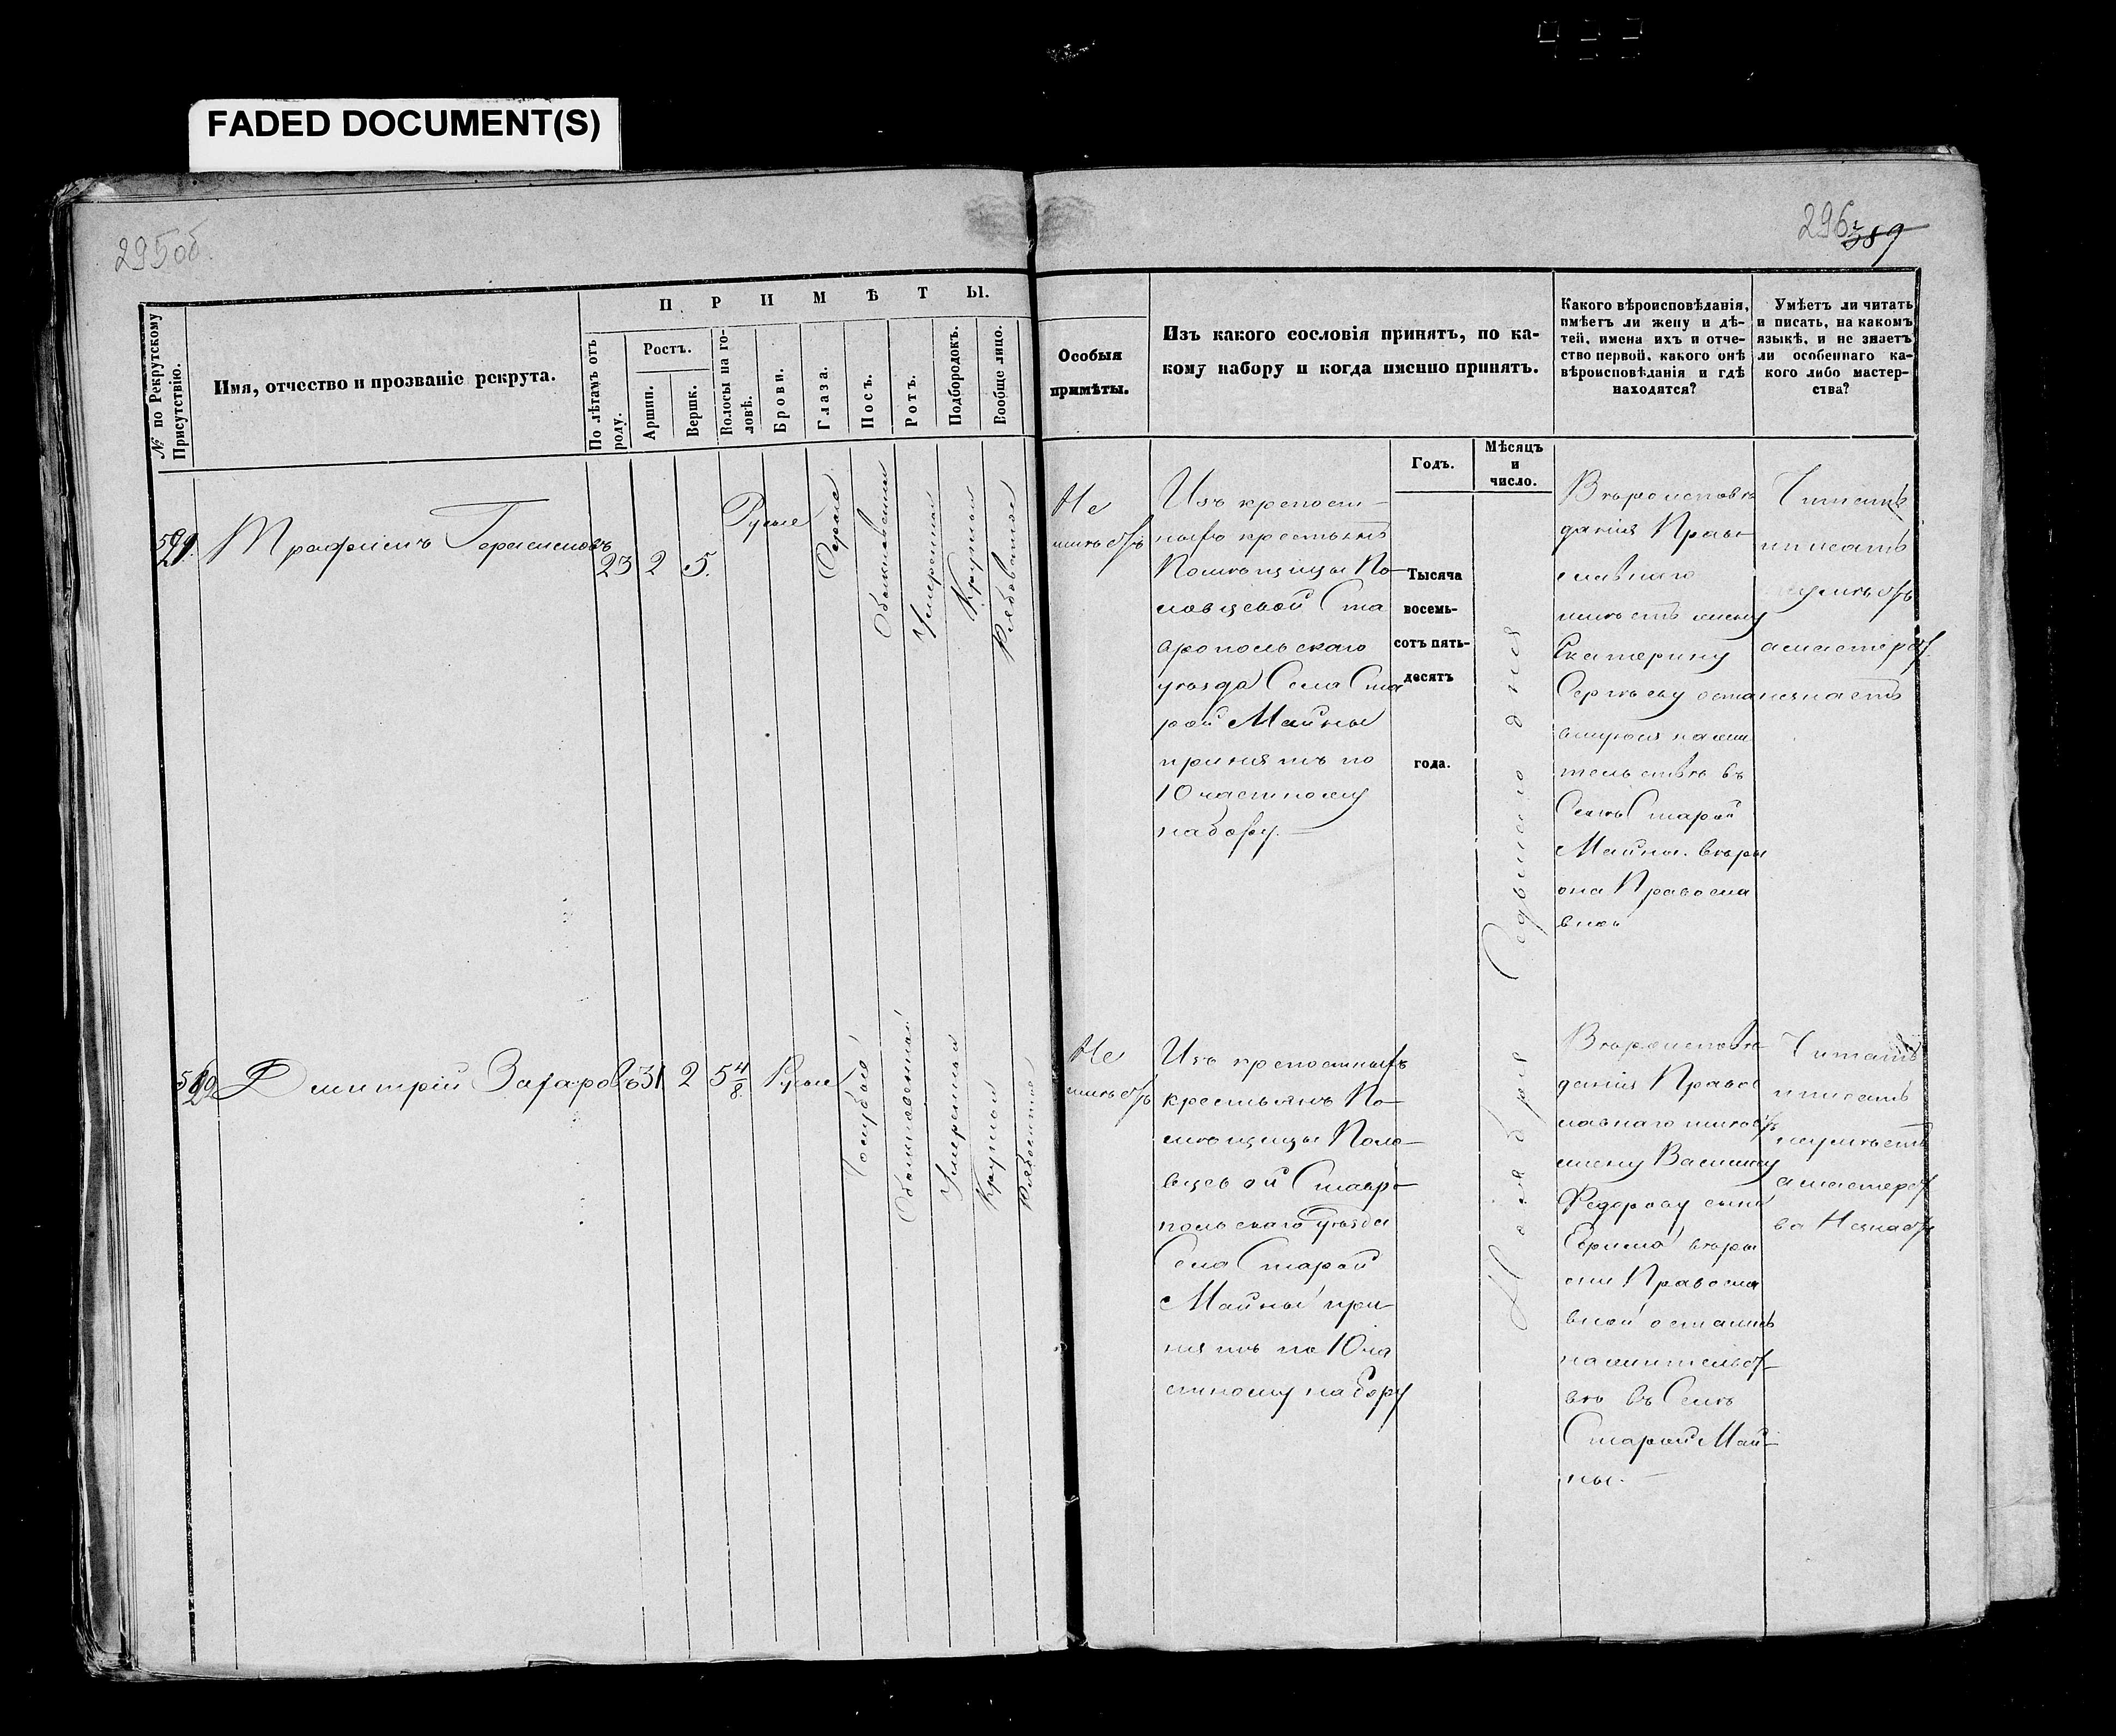 FADED DOCUMENT(S)
295об.
296
389
№ по Рекрутскому Присутствію.
Имя, отчество и прозваніе рекрута.
ПРИМѢТЫ.
По лѣтамъ отъ роду.
Ростъ.
Аршин.
Вершк.
Волосы на головѣ.
Брови.
Глаза.
Носъ.
Ротъ.
Подбородокъ.
Вообще лицо.
Особыя
примѣты.
Изъ какого сословія принятъ, по ка-
кому набору и когда именно принятъ.
Годъ.
Мѣсяцъ
и
число.
Какого вѣроисповѣданія,
имѣетъ ли жену и дѣ-
тей, имена ихъ и отче-
ство первой, какого онѣ
вѣроисповѣданія и гдѣ
находятся?
Умѣетъ ли читать
и писать, на какомъ
языкѣ, и не знаетъ
ли особеннаго ка-
кого либо мастер-
ства?
Трафимъ Герасимовъ
23
2
5.
Русые
Серые
Обыкновенные
Умеренный
Круглый
Рябоватое
Не
имѣетъ
Изъ крепост-
ныхъ крестьянъ
Помѣщицы По-
ловцевой Ста
вропольскаго
уѣзда Села Ста
рой Майны
принятъ по
10 частному
набору.
Тысяча
восемь-
сотъ пять-
десятъ
года.
Ноября Седьмаго дня
Вѣроисповѣ
данія Прав
славнаго
имѣетъ жену
Екатерину
Сергѣеву оста
вшуюся на жи
тельствѣ въ
Селѣ Старой
Майны. вѣры
она Правосла
вной
Читать
и писать
неумѣетъ
а мастерст
незнаетъ
Дмитрій Захаровъ
31
2
5 4/8
Русые
Голубые
Обыкновенный
Умеренный
Круглый
Рябоватое
Не
имѣетъ
Изъ крепостныхъ
крестьянъ По-
мѣщицы Поло-
вцевой Ставро
польскаго уѣзда
Села Старой
Майны при
нятъ по 10 ча
стному набору
Вѣроисповѣ
данія Правос
лавнаго имѣетъ
жену Василису
Федорову сына
Ефима вѣры
они Правосла
вной остались
на жительст
вѣ въ Селѣ
Старой Май-
ны.
Читать
и писать
неумѣетъ
а мастерст
ва Незнаетъ